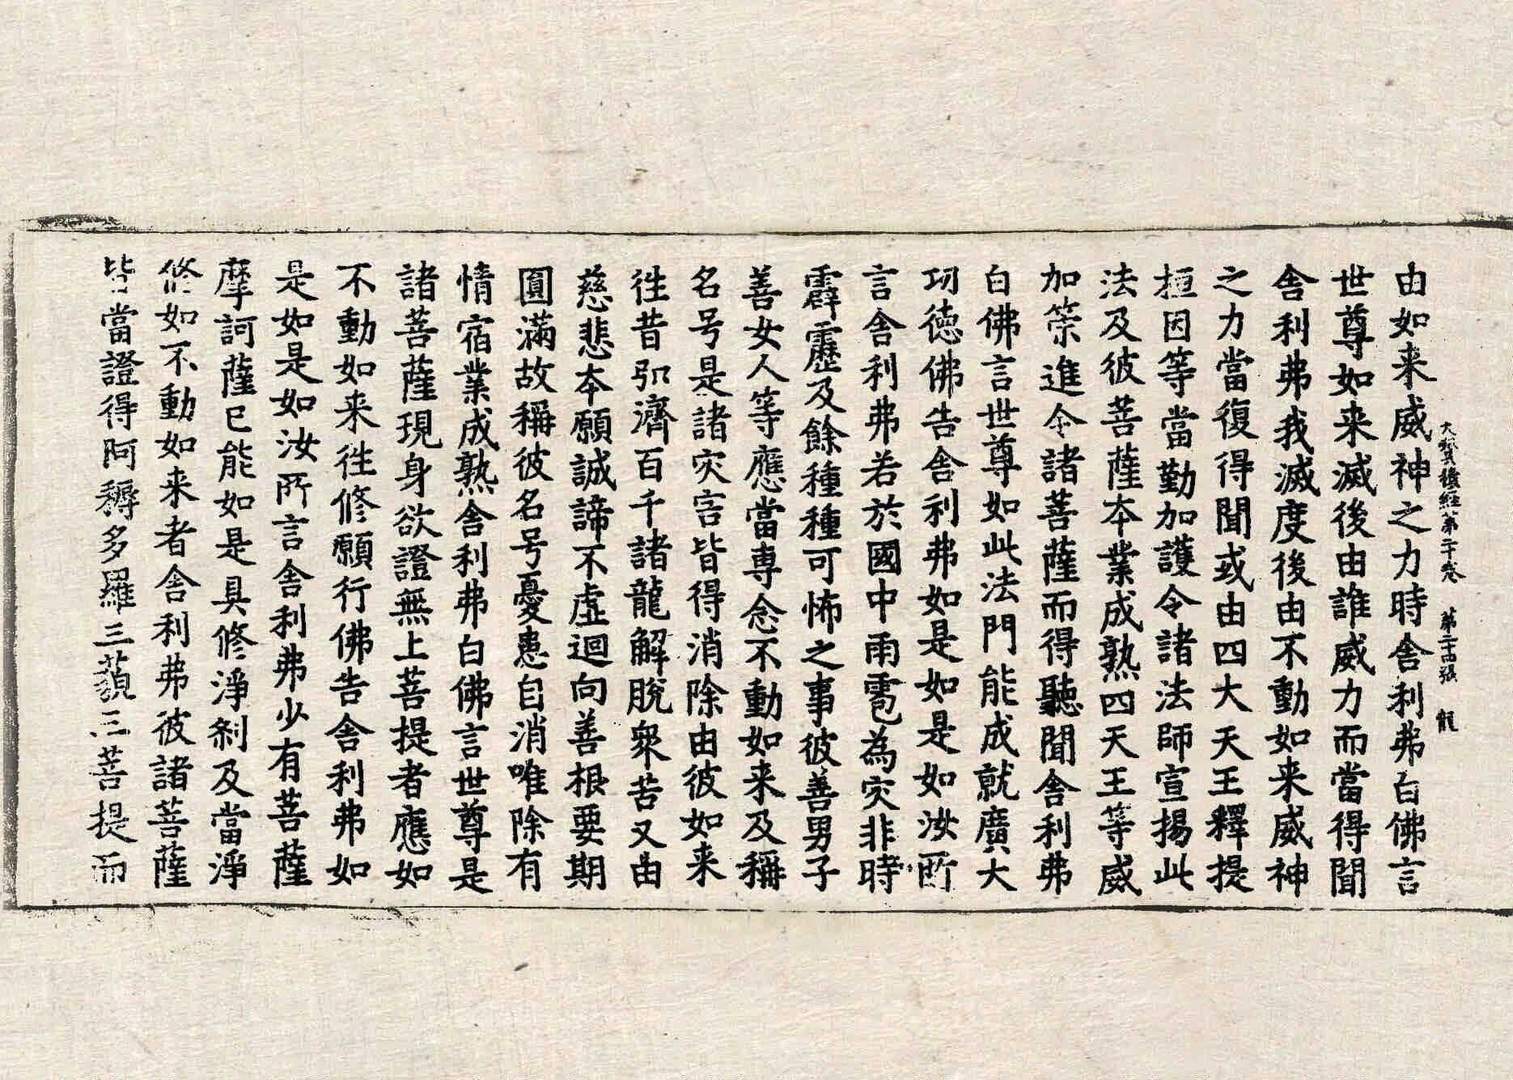 大寶積經第二十卷　第二十四張　龍
由如来威神之力時舎利弗白佛言
世尊如来滅後由誰威力而當得聞
舎利弗我滅度後由不動如来威神
之力當復得聞或由四大天王釋提
桓因等當勤加護令諸法師宣揚此
法及彼菩薩夲業成熟四天王等威
加䇿進令諸菩薩而得聽聞舎利弗
白佛言世尊如此法門能成就廣大
功德佛告舎利弗如是如是如汝所
言舎利弗若於國中雨雹為灾非時
霹靂及餘種種可怖之事彼善男子
善女人等應當専念不動如来及稱
名号是諸灾害皆得消除由彼如来
徃昔弘濟百千諸龍解脫衆苦又由
慈悲夲願誠諦不虛迴向善根要期
圓滿故稱彼名号憂患自消唯除有
情宿業成熟舎利弗白佛言世尊是
諸菩薩現身欲證無上菩提者應如
不動如来徃修願行佛告舎利弗如
是如是如汝所言舎利弗少有菩薩
摩訶薩已能如是具修淨刹及當淨
修如不動如来者舎利弗彼諸菩薩
皆當證得阿耨多羅三藐三菩提而